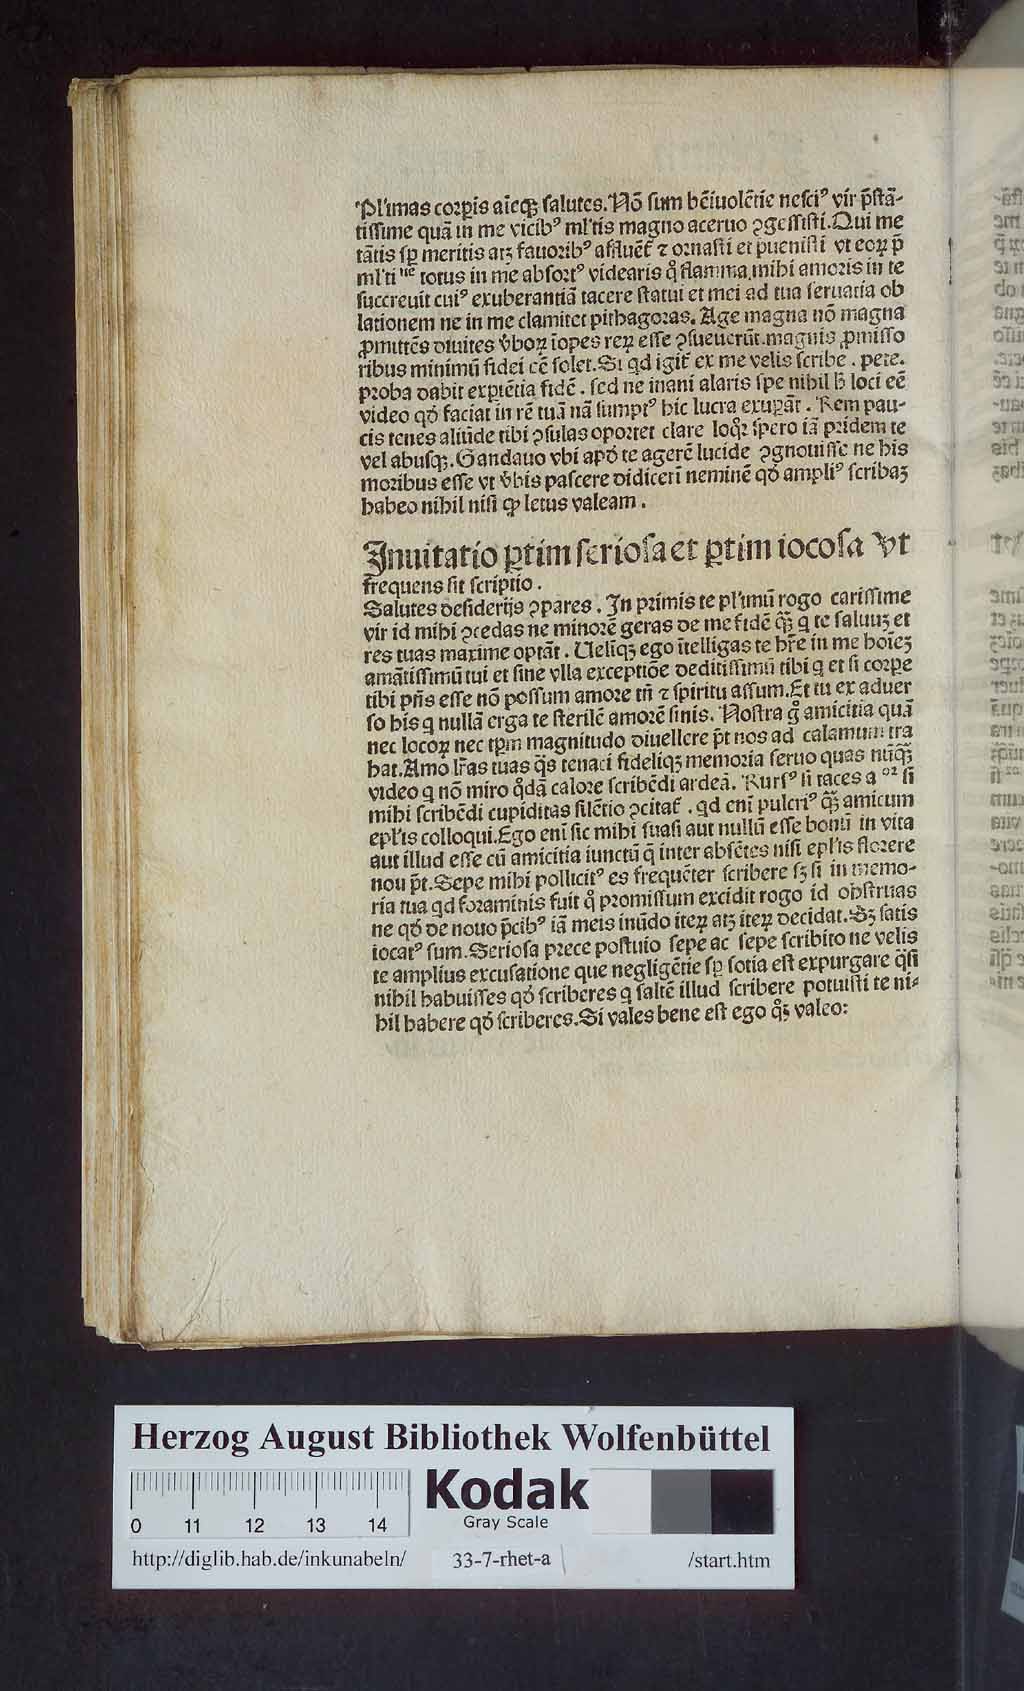 Pl'imas corꝑis aīeqꝫ salutes. Nō sum bēiuolētie nesciꝰ vir p̄stā-
tissime quā in me vicibꝰ ml'tis magno aceruo ꝯgessisti. Qui me
tātis sꝑ meritis atꝫ fauoribꝰ affluēt ⁊ ornasti et p̄uenisti vt eoꝝ p̄
ml'ti totus in me absortꝰ videaris qͦ flamma mihi amoris in te
succreuit cuiꝰ exuberantiā tacere statui et mei ad tua seruatia ob
lationem ne in me clamitet pithagoras. Age magna nō magna
ꝓmittēs diuites v̄boꝝ iopes reꝝ esse ꝯsueuerūt. magnis ꝓmisso
ribus minimū fidei eē solet. Si qd igit̄ ex me velis scribe . pete.
proba dabit expiētia fidē . sed ne inani alaris spe nihil h̄ loci eē
video qd̄ faciat in rē tuā nā sumptꝰ hic lucra exupāt . Rem pau-
cis tenes aliūde tibi ꝯsulas oportet clare loqͦr spero iā pridem te
vel abusqꝫ. Gandauo vbi apd̄ te agerē lucide ꝯgnouisse ne his
moribus esse vt v̄bis pascere didicerī neminē qd̄ ampliꝰ scribaꝫ
habeo nihil nisi ꝙ letus valeam .
Inuitatio ꝑtim seriosa et ꝑtim iocosa Vt
frequens sit scriptio .
Salutes desiderijs ꝯpares . In primis te pl'imū rogo carissime
vir id mihi ꝯcedas ne minorē geras de me fidē qꝫ̄ q te saluuꝫ et
res tuas maxime optāt . Ueliqꝫ ego ītelligas te hr̄e in me hoīeꝫ
amātissimū tui et sine vlla exceptiōe deditissimū tibi q et si corpe
tibi pn̄s esse nō possum amore tn̄ ⁊ spiritu assum. Et tu ex aduer
so his q nullā erga te sterilē amorē sinis. Nostra gͦ amicitia quā
nec locoꝝ nec tꝑm magnitudo diuellere p̄t nos ad calamum tra
hat. Amo lr̄as tuas q̄s tenaci fideliqꝫ memoria seruo quas nūqꝫ̄
video q nō miro qͦdā calore scribēdi ardeā. Rursꝰ si taces a si
mihi scribēdi cupiditas silētio ꝯcitat̄ . qd enī pulcriꝰ qꝫ̄ amicum
epl'is colloqui. Ego enī sic mihi suasi aut nullū esse bonū in vita
aut illud esse cū amicitia iunctū q̄ inter absētes nisi epl'is florere
nou p̄t. Sepe mihi pollicitꝰ es frequēter scribere sꝫ si in memo-
ria tua qd foraminis fuit qͦ promissum excidit rogo id obstruas
ne qd̄ de nouo p̄cibꝰ iā meis inūdo iteꝝ atꝫ iteꝝ decidat. Sꝫ satis
iocatꝰ sum. Seriosa prece postulo sepe ac sepe scribito ne velis
te amplius excusatione que negligētie sꝑ sotia est expurgare q̄si
nihil habuisses qd̄ scriberes q saltē illud scribere potuisti te ni-
hil habere qd̄ scriberes. Si vales bene est ego qͦꝫ valeo:
Herzog August Bibliothek Wolfenbüttel
Kodak
Gray Scale
0 11 12 13 14
http://diglib.hab.de/inkunabeln/ 33-7-rhet-a /start.htm